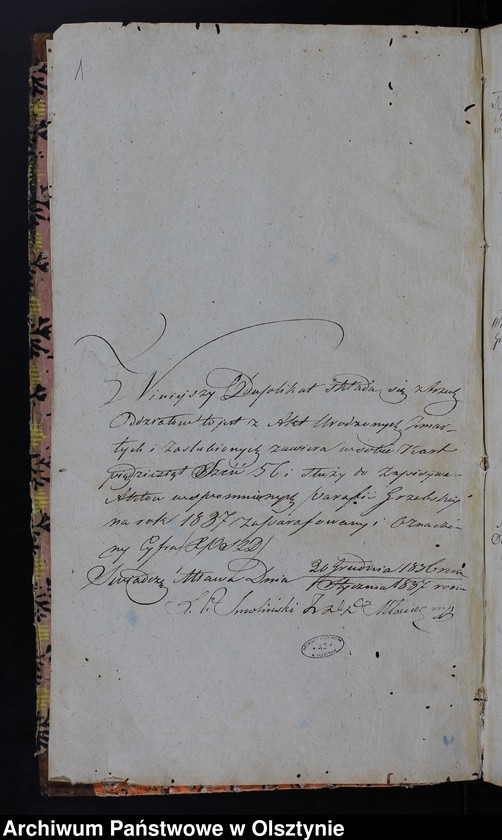 1
Niniejszy Duplikat składa się z trzech
Oddziałów to jest z Akt Urodzonych Zmar-
łych i Zaślubionych zawiera w sobie Kart
pięćdziesiąt Sześć 56 i służy do Zapisywa-
Aktów wspomnionych Parafii Grzebskiej
na rok 1837 zaparafowany i Oznaczo-
ny Cyfrą
Świadczę Mława Dnia 20 Grudnia 1836 roku
1 Stycznia 1837 roku
Smoliński
Archiwum Państwowe w Olsztynie